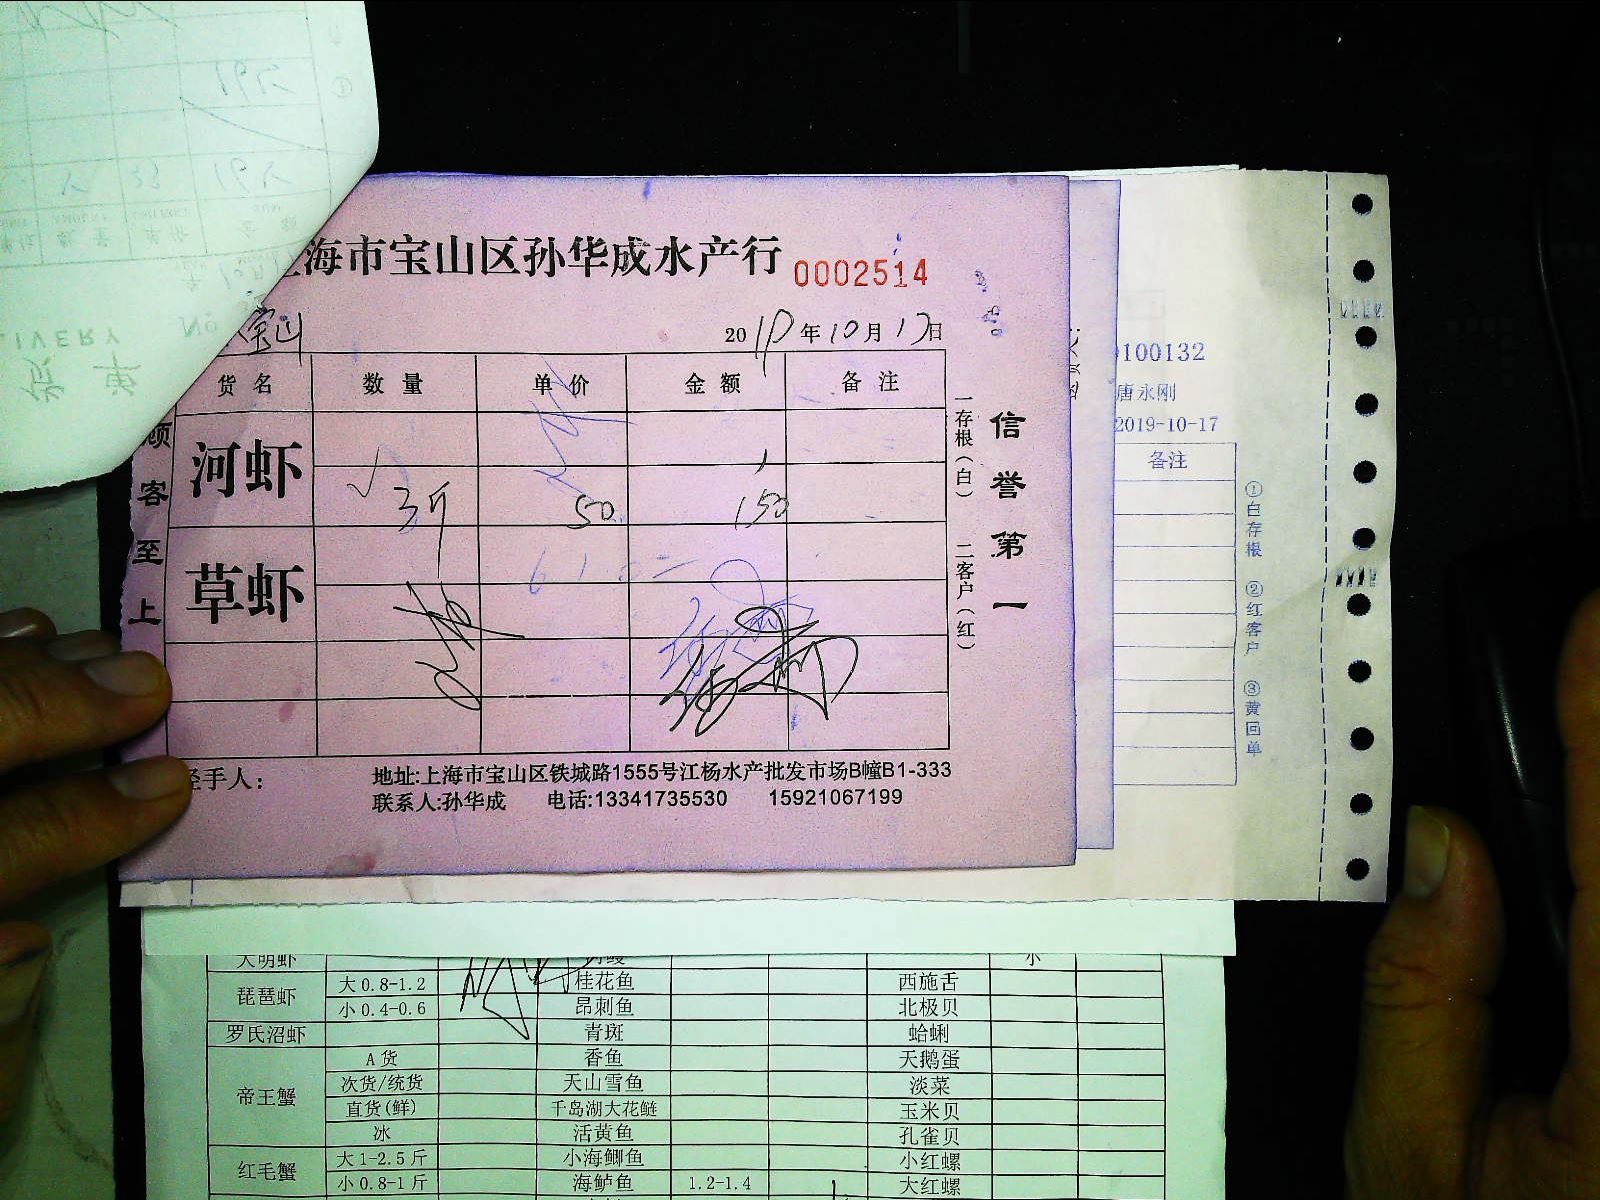 海市宝山区孙华成水产行 0002514
宝山
2019年10月17日
货名 数量 单价 金额 备注
河虾
3斤 50 150
草虾
顾客至上
信誉第一
一存根(白) 二客户(红)
经手人:
地址:上海市宝山区铁城路1555号江杨水产批发市场B幢B1-333
联系人:孙华成 电话:13341735530 15921067199
100132
唐永刚
2019-10-17
备注
①白存根 ②红客户 ③黄回单
大明虾 小
琵琶虾 大0.8-1.2 桂花鱼 西施舌
小0.4-0.6 昂刺鱼 北极贝
罗氏沼虾 青斑 蛤蜊
帝王蟹 A货 香鱼 天鹅蛋
次货/统货 天山雪鱼 淡菜
直货(鲜) 千岛湖大花鲢 玉米贝
冰 活黄鱼 孔雀贝
红毛蟹 大1-2.5斤 小海鲫鱼 小红螺
小0.8-1斤 海鲈鱼 1.2-1.4 大红螺